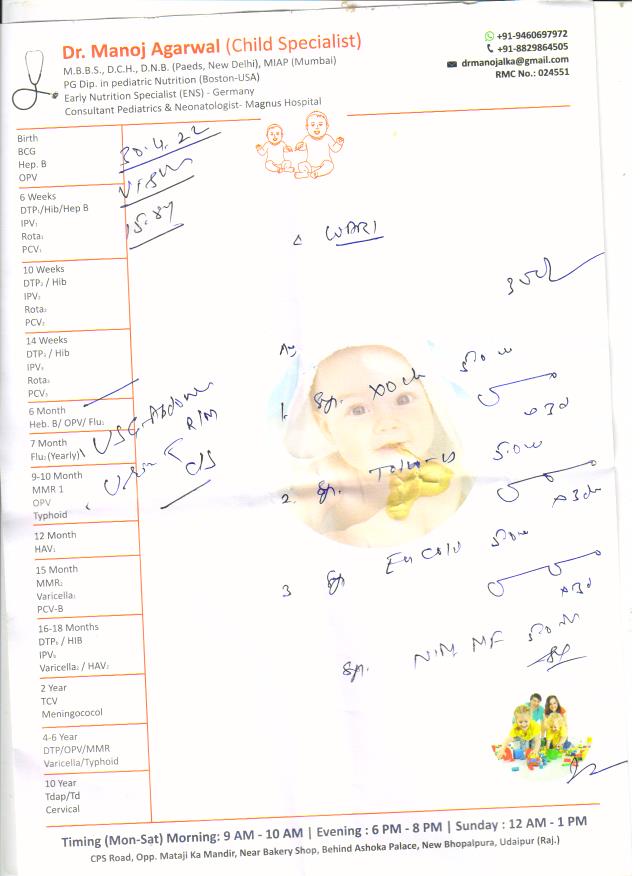 Dr. Manoj Agarwal (Child Specialist)
M.B.B.S., D.C.H., D.N.B. (Paeds, New Delhi), MIAP (Mumbai)
PG Dip. in pediatric Nutrition (Boston-USA)
Early Nutrition Specialist (ENS) - Germany
Consultant Pediatrics & Neonatologist- Magnus Hospital
+91-9460697972
+91-8829864505
drmanojalka@gmail.com
RMC No.: 024551
Birth
BCG
Hep. B
OPV
30.4.22
6 Weeks
DTP₁/Hib/Hep B
IPV₁
Rota₁
PCV₁
10 Weeks
DTP₂ / Hib
IPV₂
Rota₂
PCV₂
14 Weeks
DTP₃ / Hib
IPV₃
Rota₃
PCV₃
6 Month
Heb. B/ OPV/ Flu₁
7 Month
Flu₂ (Yearly)
USG Abdomen
9-10 Month
MMR 1
OPV
Typhoid
Urine R/M
C/S
12 Month
HAV₁
15 Month
MMR₂
Varicella₁
PCV-B
16-18 Months
DTP₄ / HIB
IPV₄
Varicella₂ / HAV₂
2 Year
TCV
Meningococol
4-6 Year
DTP/OPV/MMR
Varicella/Typhoid
10 Year
Tdap/Td
Cervical
1. Syp.
x3d
2. Syp.
x3d
3 Syp
x3d
Syp.
Timing (Mon-Sat) Morning: 9 AM - 10 AM | Evening : 6 PM - 8 PM | Sunday : 12 AM - 1 PM
CPS Road, Opp. Mataji Ka Mandir, Near Bakery Shop, Behind Ashoka Palace, New Bhopalpura, Udaipur (Raj.)